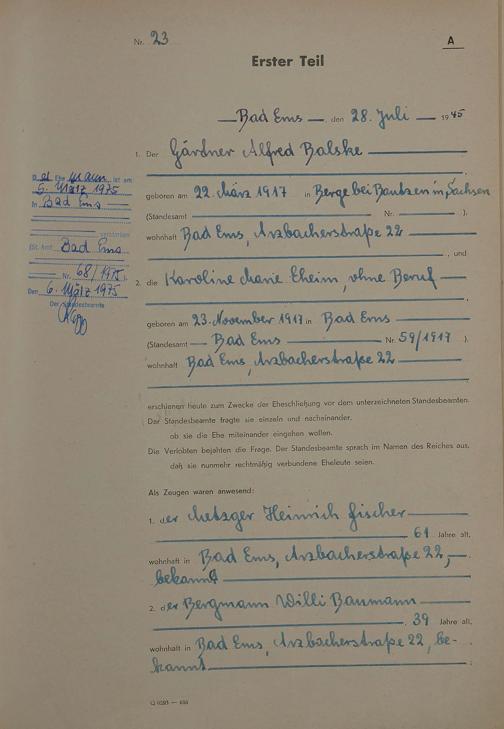 Nr. 23
A
Erster Teil
Bad Ems, den 28. Juli 1945
1. Der Gärdner Alfred Balske
geboren am 22. März 1917 in Berge bei Bautzen in Sachsen
(Standesamt Nr. ).
wohnhaft Bad Ems, Arzbacherstraße 22
, und
2. die Karoline Marie Eheim, ohne Beruf
geboren am 23. November 1917 in Bad Ems
(Standesamt Bad Ems Nr. 59/1917 ).
wohnhaft Bad Ems, Arzbacherstraße 22
erschienen heute zum Zwecke der Eheschließung vor dem unterzeichneten Standesbeamten.
Der Standesbeamte fragte sie einzeln und nacheinander,
ob sie die Ehe miteinander eingehen wollen.
Die Verlobten bejahten die Frage. Der Standesbeamte sprach im Namen des Reiches aus,
daß sie nunmehr rechtmäßig verbundene Eheleute seien.
Als Zeugen waren anwesend:
1. der Metzger Heinrich Fischer
61 Jahre alt,
wohnhaft in Bad Ems, Arzbacherstraße 22,
bekannt
2. der Bergmann Willi Baumann
39 Jahre alt,
wohnhaft in Bad Ems, Arzbacherstraße 22, be-
kannt
D Ehemann ist am
5. März 1975
in Bad Ems
verstorben
(St. Amt Bad Ems
Nr. 68/1975)
Den 6. März 1975
Der Standesbeamte